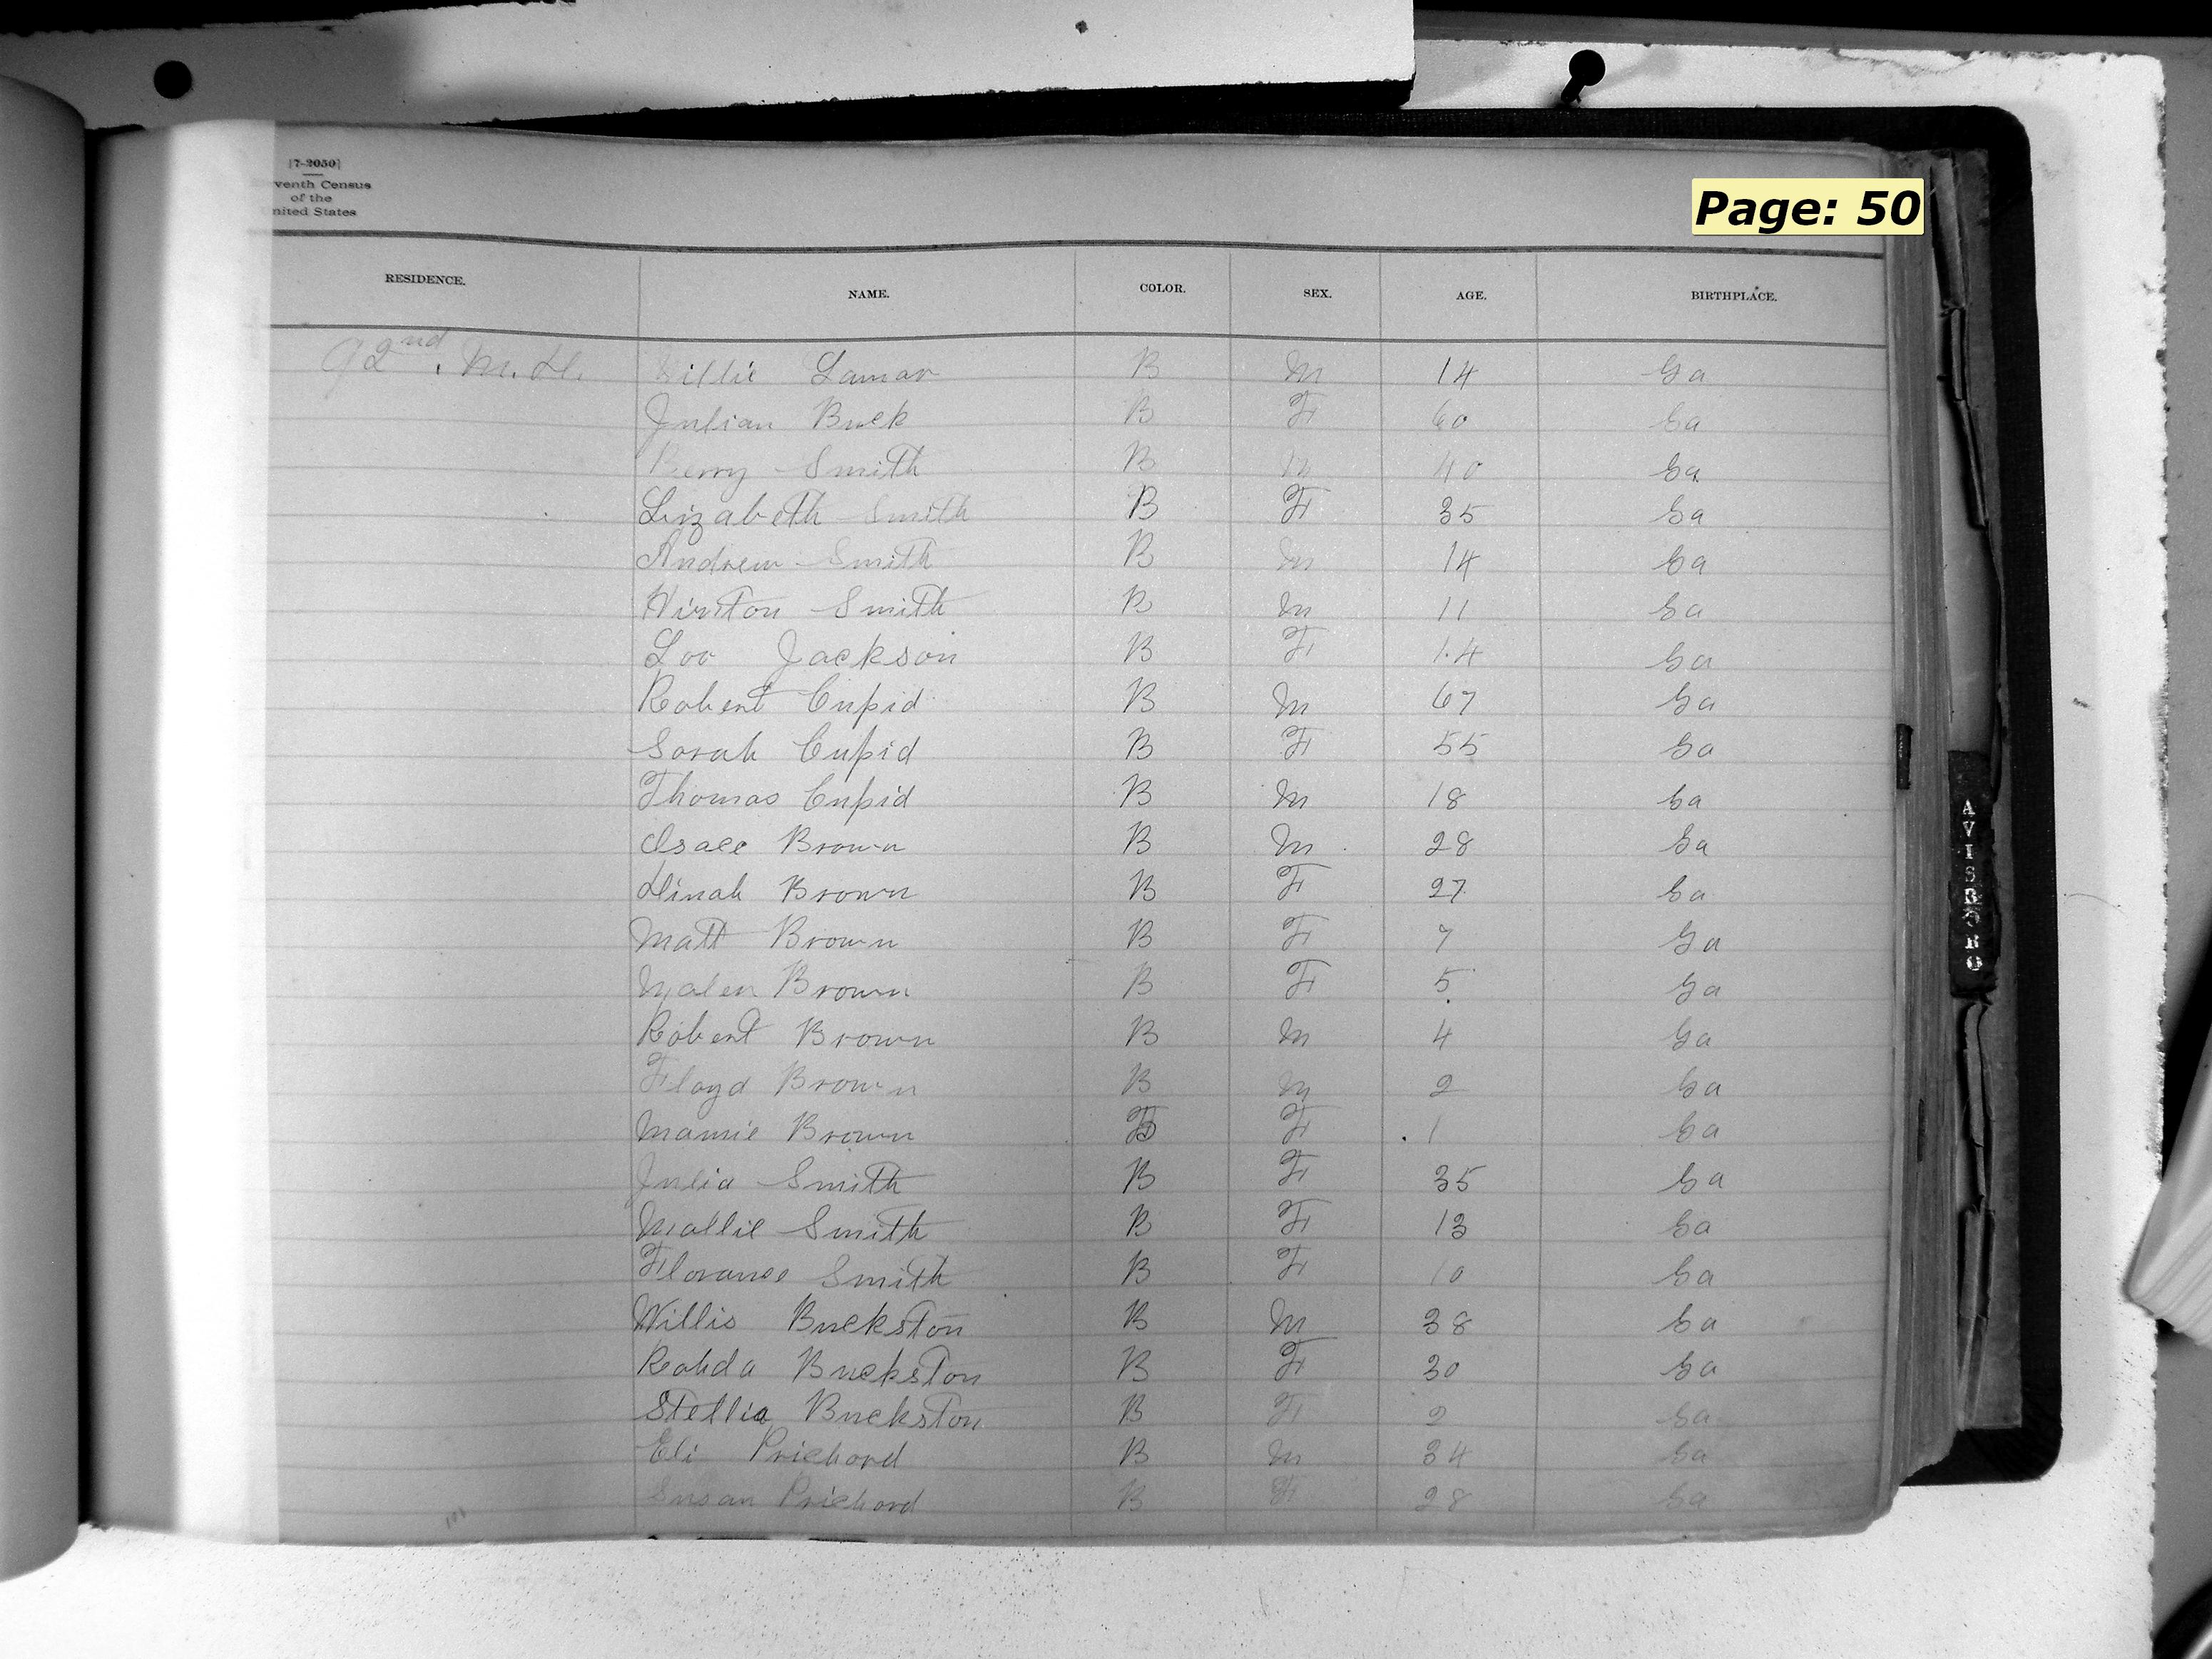 [7-2050]
venth Census
of the
nited States
Page: 50
RESIDENCE. NAME. COLOR. SEX. AGE. BIRTHPLACE.
92nd. M.D. Willie Lamar B M 14 Ga
Julian Buck B F 60 Ga
Berry Smith B M 40 Ga
Lizabeth Smith B F 35 Ga
Andrew Smith B M 14 Ga
Winton Smith B M 11 Ga
Loo Jackson B F 14 Ga
Robert Cupid B M 67 Ga
Sarah Cupid B F 55 Ga
Thomas Cupid B M 18 Ga
Isace Brown B M 28 Ga
Dinah Brown B F 27 Ga
Matt Brown B F 7 Ga
Malen Brown B F 5 Ga
Robert Brown B M 4 Ga
Floyd Brown B M 2 Ga
Mamie Brown B F 1 Ga
Julia Smith B F 35 Ga
Mallie Smith B F 13 Ga
Florance Smith B F 10 Ga
Willis Buckston B M 38 Ga
Rohda Buckston B F 30 Ga
Stellia Buckston B F 2 Ga
Eli Prichard B M 34 Ga
Susan Prichard B F 28 Ga